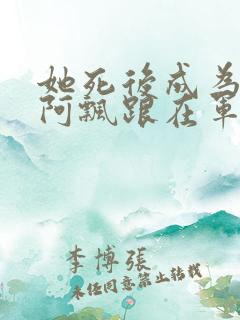 她死後成為
阿飄跟在軍
李博張
未經同意禁止轉載